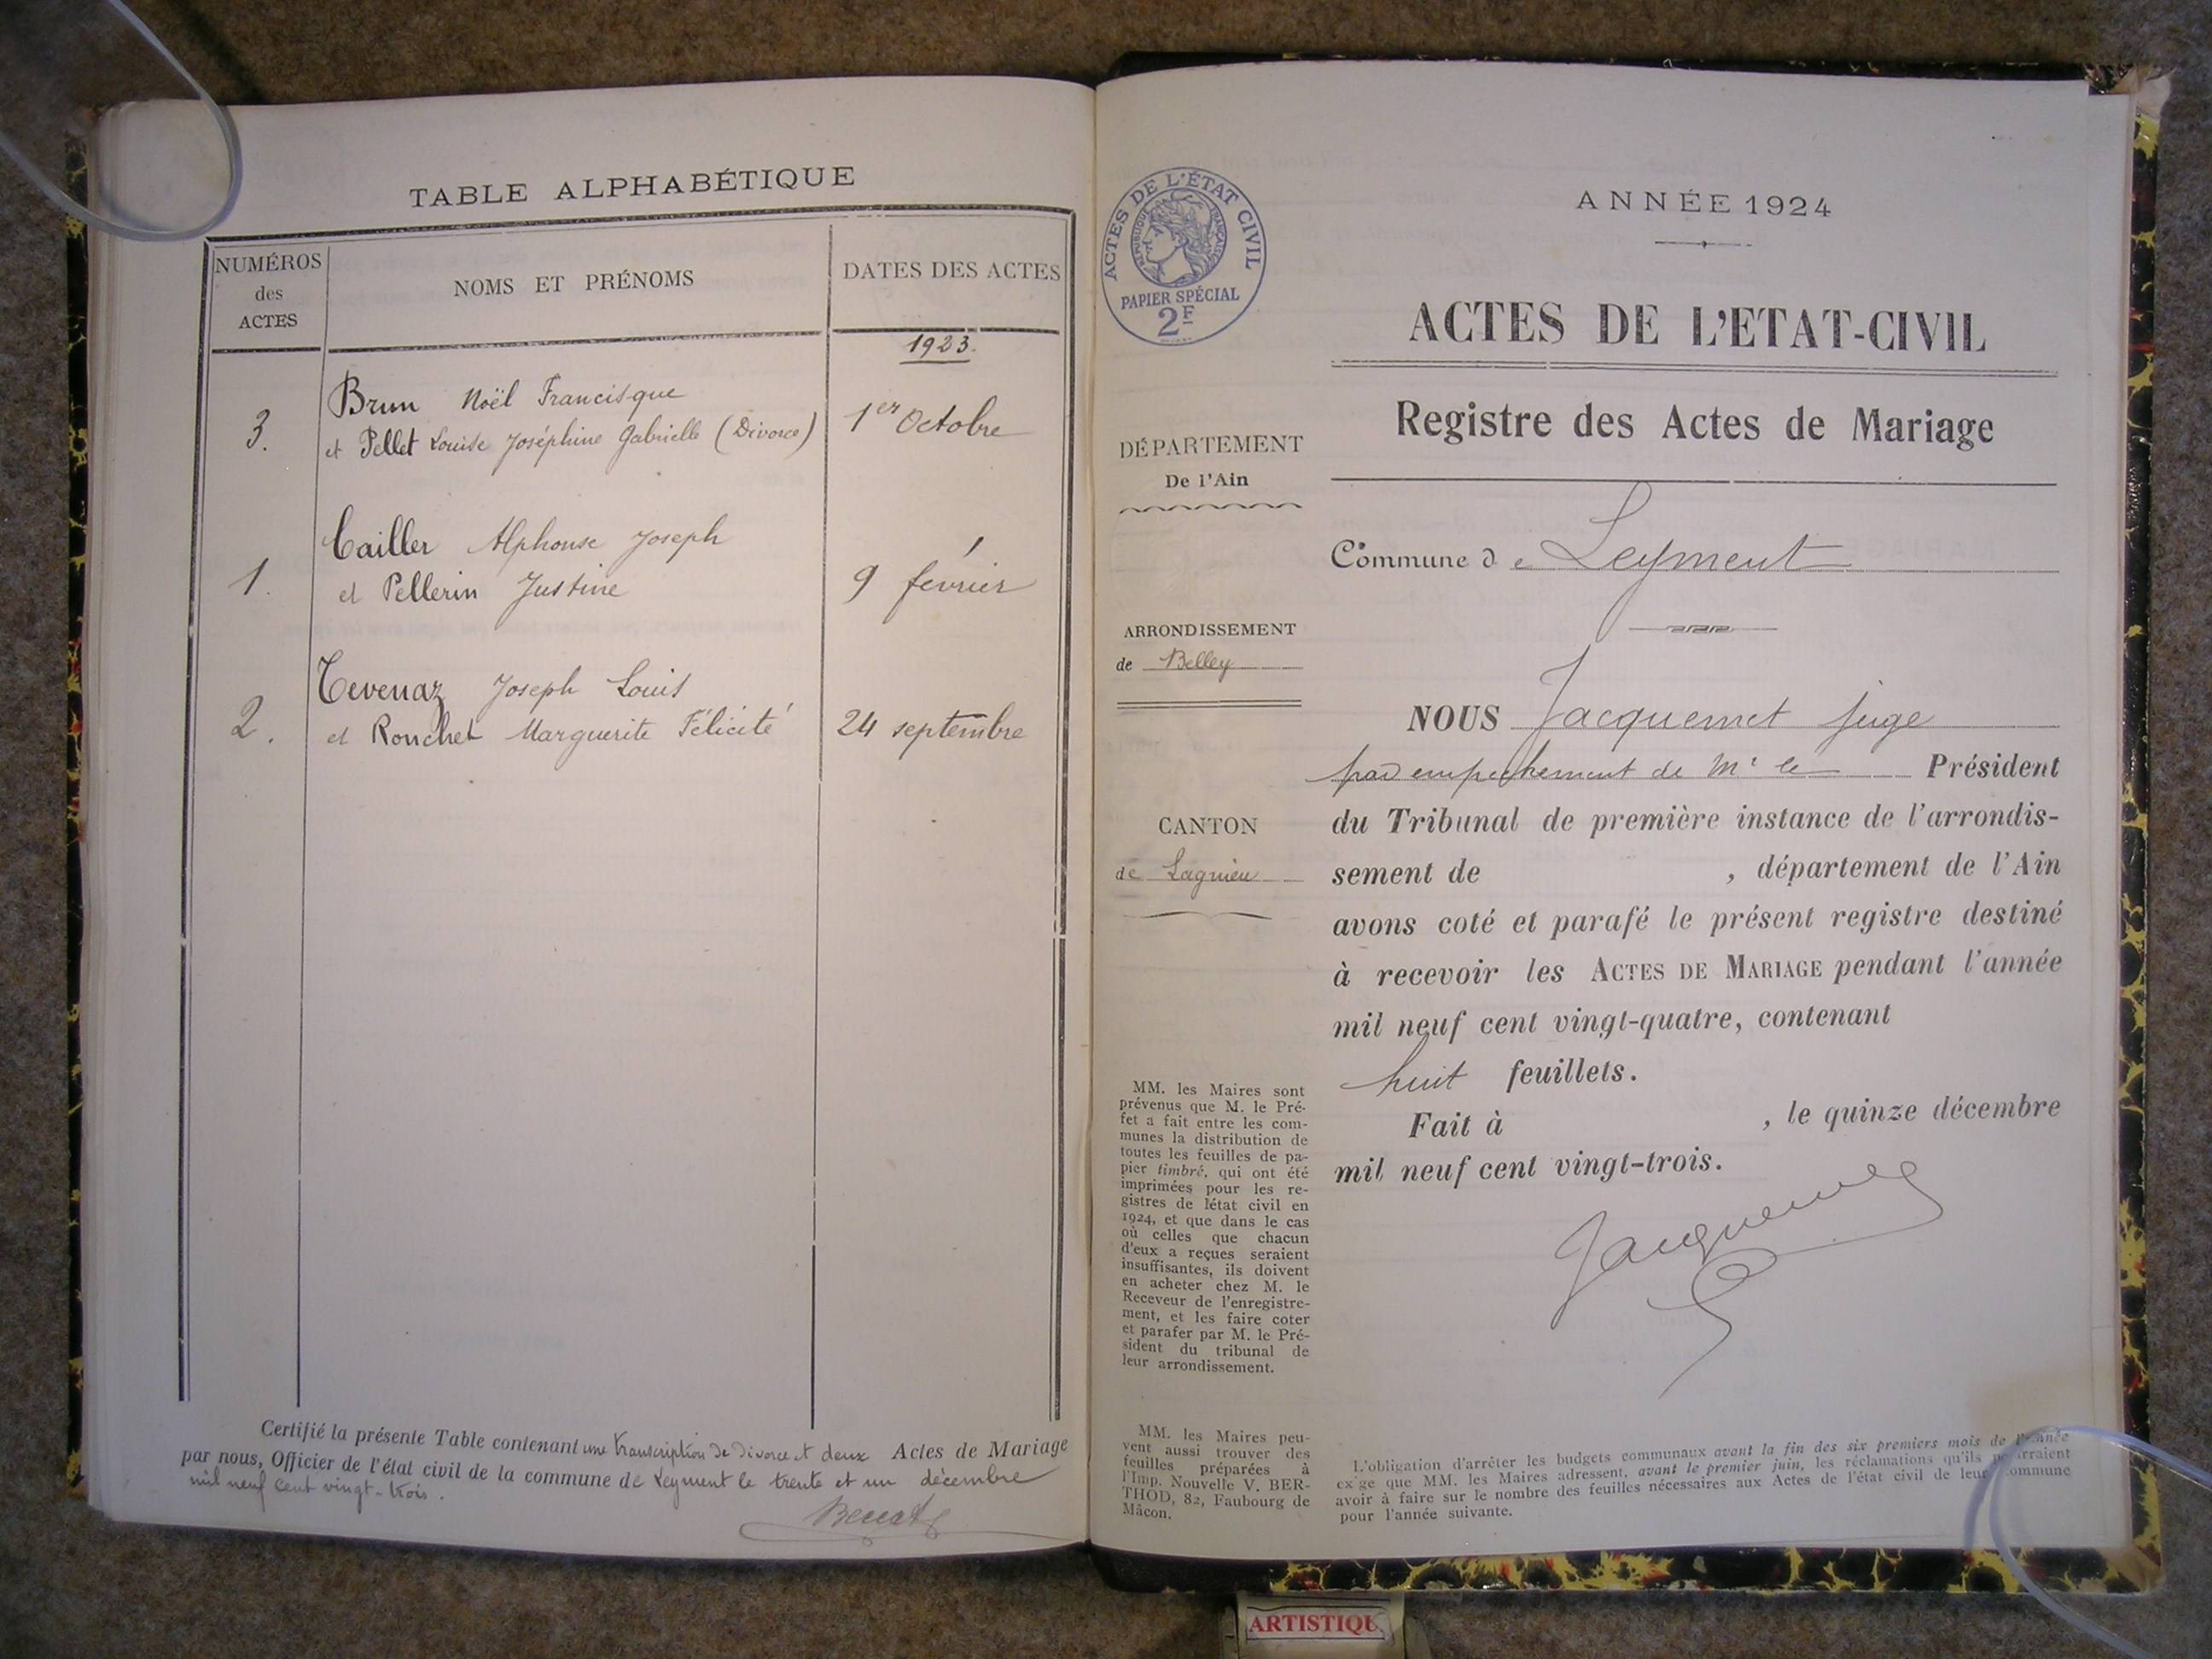 TABLE ALPHABÉTIQUE
NUMÉROS
des
ACTES
NOMS ET PRÉNOMS
DATES DES ACTES
1923.
3.
Brun Noël Francisque
et Pellet Louise Joséphine Gabrielle (Divorce)
1er Octobre
1.
Cailler Alphonse Joseph
et Pellerin Justine
9 février
2.
Tevenaz Joseph Louis
et Ronchet Marguerite Félicité
24 septembre
Certifié la présente Table contenant une transcription de divorce et deux Actes de Mariage
par nous, Officier de l'état civil de la commune de Leyment le trente et un décembre
mil neuf cent vingt-trois.
ACTES DE L'ÉTAT CIVIL
RÉPUBLIQUE FRANÇAISE
PAPIER SPÉCIAL
2F
DÉPARTEMENT
De l'Ain
ARRONDISSEMENT
de Belley
CANTON
de Lagnieu
MM. les Maires sont
prévenus que M. le Pré-
fet a fait entre les com-
munes la distribution de
toutes les feuilles de pa-
pier timbré, qui ont été
imprimées pour les re-
gistres de l'état civil en
1924, et que dans le cas
où celles que chacun
d'eux a reçues seraient
insuffisantes, ils doivent
en acheter chez M. le
Receveur de l'enregistre-
ment, et les faire coter
et parafer par M. le Pré-
sident du tribunal de
leur arrondissement.
MM. les Maires peu-
vent aussi trouver des
feuilles préparées à
l'Imp. Nouvelle V. BER-
THOD, 82, Faubourg de
Mâcon.
ANNÉE 1924
ACTES DE L'ETAT-CIVIL
Registre des Actes de Mariage
Commune de Leyment
NOUS Jacquemet juge
par empechement de Mr le Président
du Tribunal de première instance de l'arrondis-
sement de , département de l'Ain
avons coté et parafé le présent registre destiné
à recevoir les ACTES DE MARIAGE pendant l'année
mil neuf cent vingt-quatre, contenant
huit feuillets.
Fait à , le quinze décembre
mil neuf cent vingt-trois.
Jacquemet
L'obligation d'arrêter les budgets communaux avant la fin des six premiers mois de l'année
exige que MM. les Maires adressent, avant le premier juin, les réclamations qu'ils pourraient
avoir à faire sur le nombre des feuilles nécessaires aux Actes de l'état civil de leur commune
pour l'année suivante.
ARTISTIQU